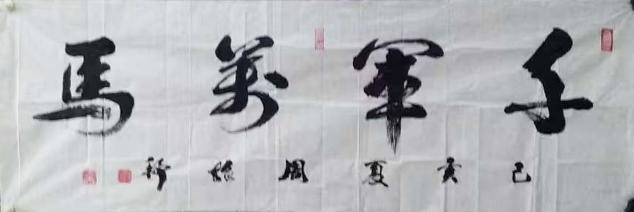 千軍萬馬
己亥夏周